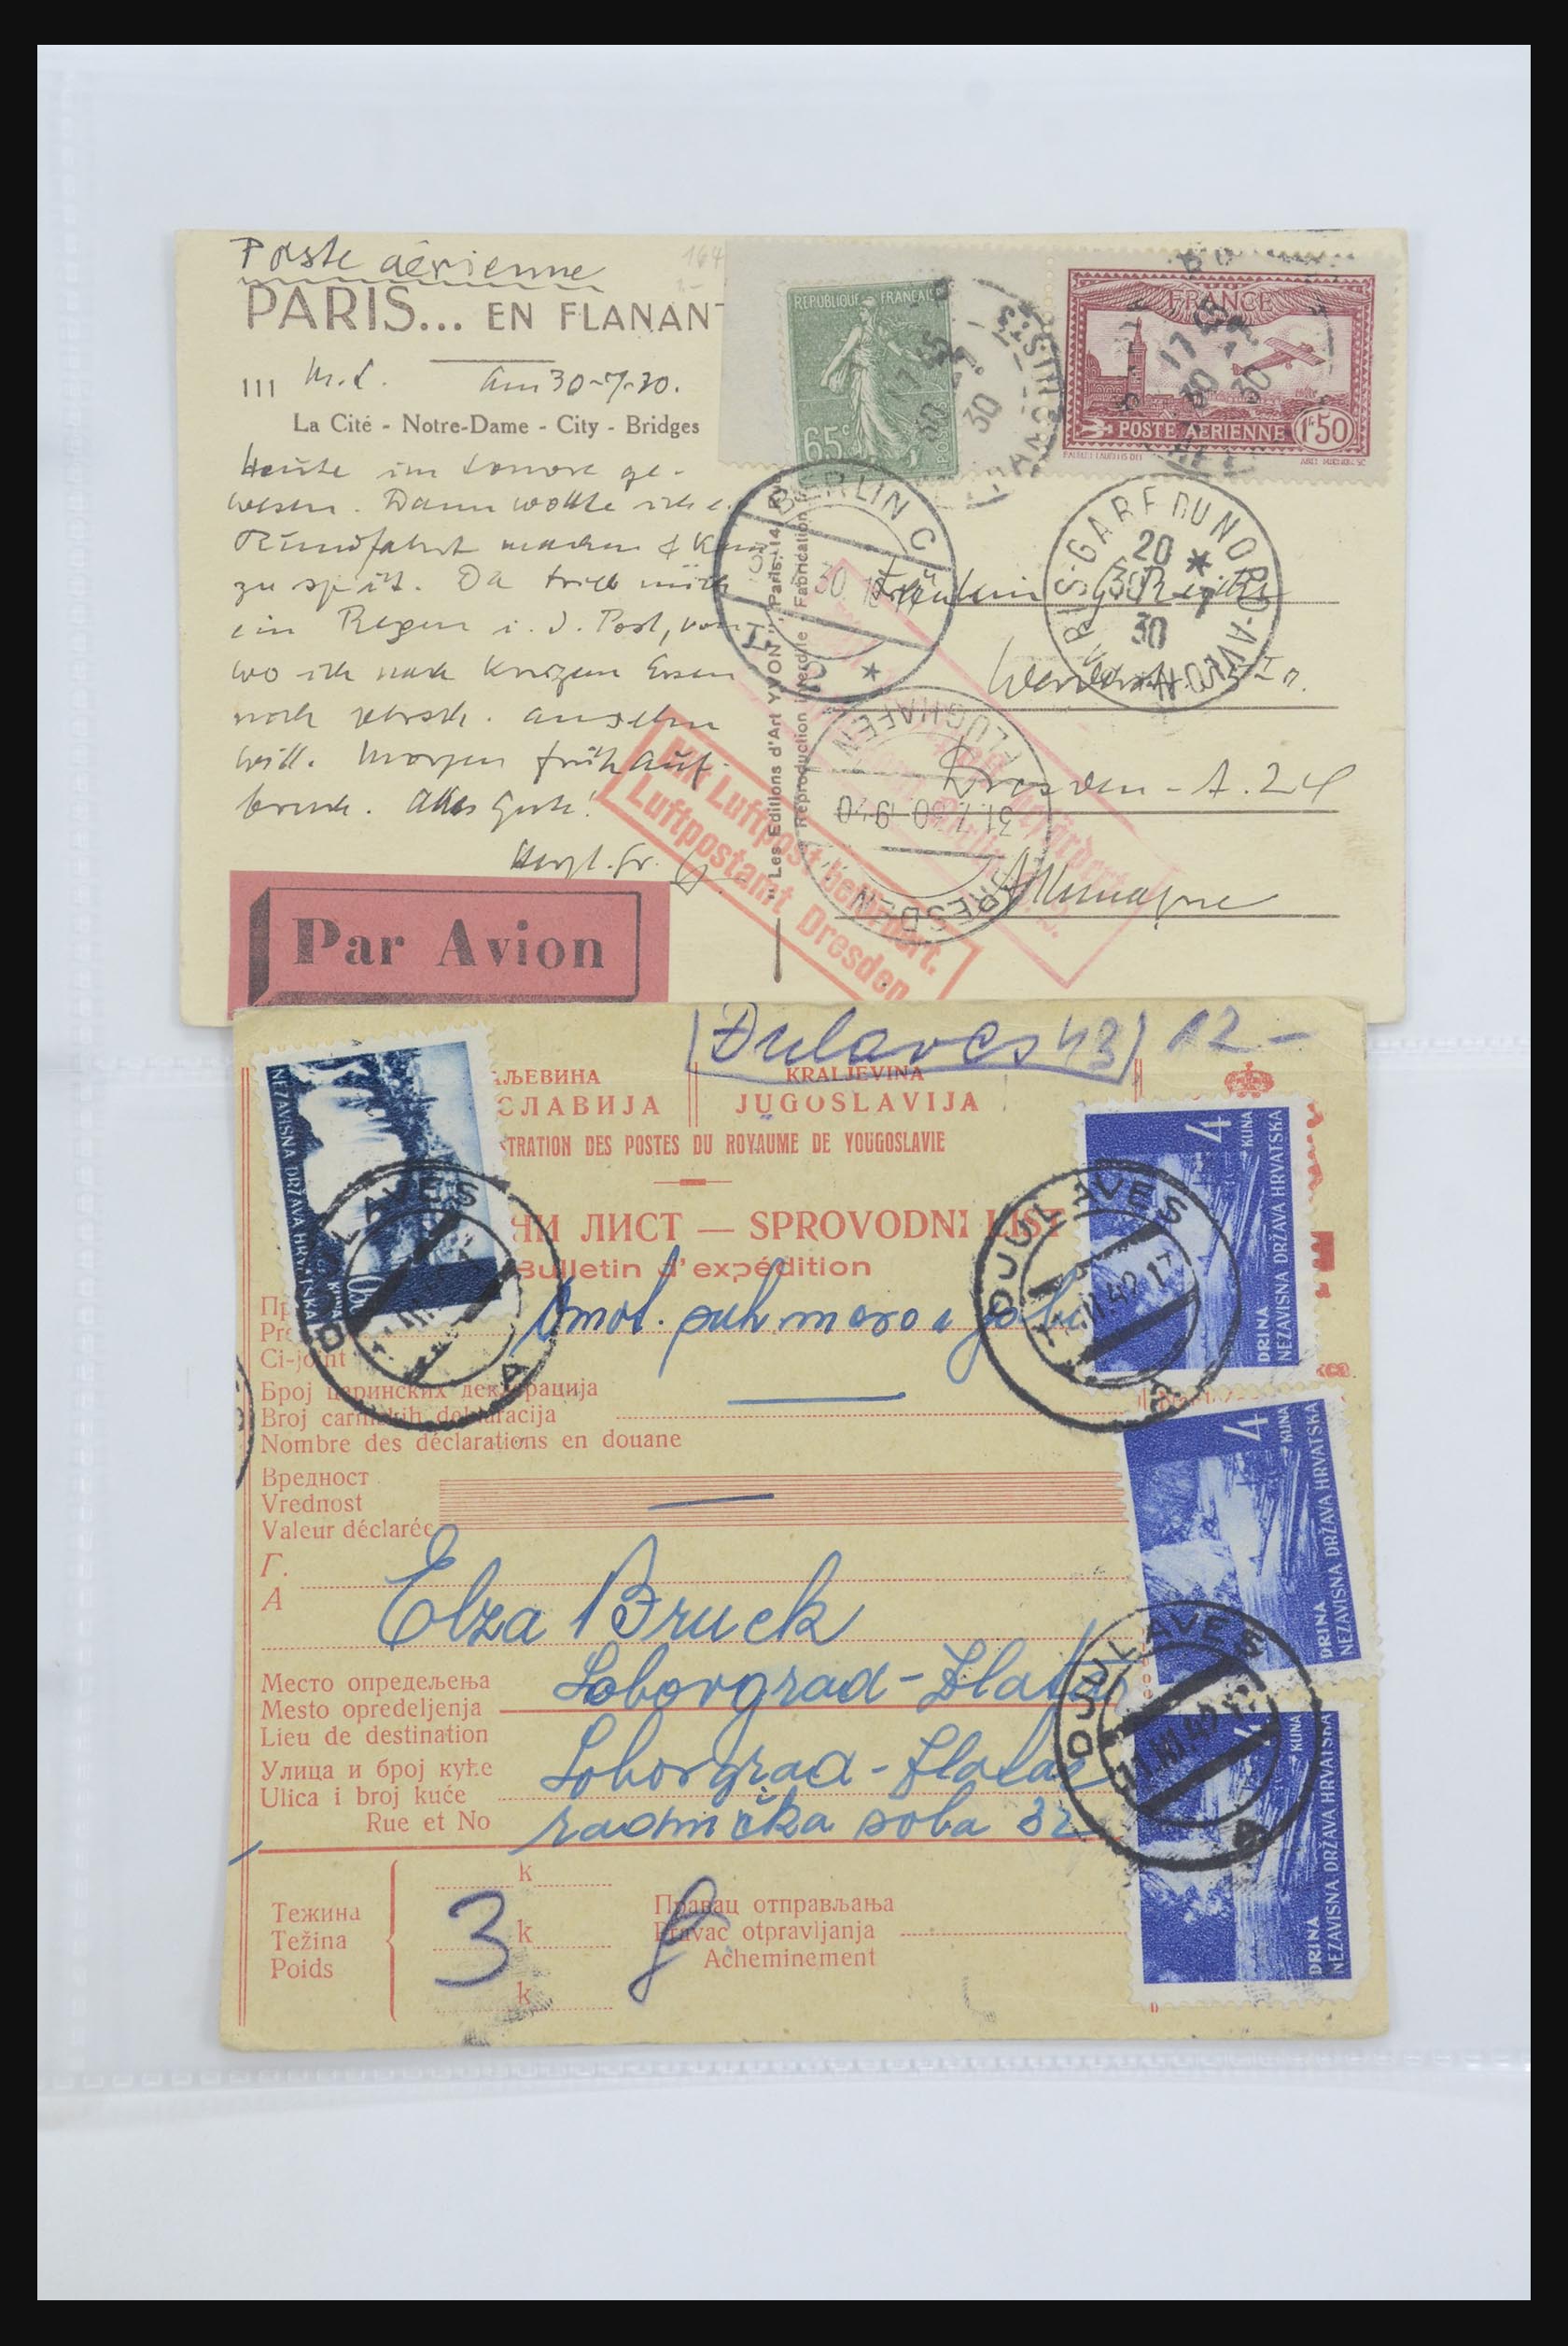 Poste aérienne
164
PARIS... EN FLANANT
111 M.L. Am 30-7-30.
La Cité - Notre-Dame - City - Bridges
Heute im Louvre ge-
wesen. Dann wollte ich e.
Rundfahrt machen & kam
zu spät. Da trieb mich
ein Regen i. d. Post, von
wo ich nach kurzem Essen
noch versch. ansehn
will. Morgen früh Auf-
bruch. Alles Gute!
Herzl. Gr.
Par Avion
REPUBLIQUE FRANÇAISE
65c
POSTES
FRANCE
POSTE AERIENNE 1F50
17 45
30
BERLIN C
PARIS-GARE DU NORD-AVION
20
30
Fräulein
Dresden - A. 24
Allemagne
FLUGHAFEN
31.7.30. 9-10
DRESDEN
Mit Luftpost befördert.
Luftpostamt Dresden
"Les Editions d'Art YVON", Paris, 14, Rue
Reproduction interdite - Fabrication
(Đulaves 43) 12.-
ЉЕВИНА KRALJEVINA
СЛАВИЈА JUGOSLAVIJA
STRATION DES POSTES DU ROYAUME DE YOUGOSLAVIE
НИ ЛИСТ — SPROVODNI LIST
Bulletin d'expédition
NEZAVISNA DRŽAVA HRVATSKA
Пр
Pr
Ci-joint
Број царинских декларација
Broj carinskih deklaracija
Nombre des déclarations en douane
Вредност
Vrednost
Valeur déclarée
Г.
A
Elza Bruck
Место опредељења
Mesto opredeljenja
Lieu de destination
Loborgrad - Zlatar
Улица и број куће
Ulica i broj kuće
Rue et No
Loborgrad - Zlatar
radnička soba 32
Тежина
Težina
Poids
k
3 k
k
Правац отправљања
Pravac otpravljanja
Acheminement
4 KUNA
DRINA
NEZAVISNA DRŽAVA HRVATSKA
4 KUNA
DRINA
NEZAVISNA DRŽAVA HRVATSKA
4 KUNA
DRINA
NEZAVISNA DRŽAVA HRVATSKA
DJULAVES
DJULAVES
DJULAVES